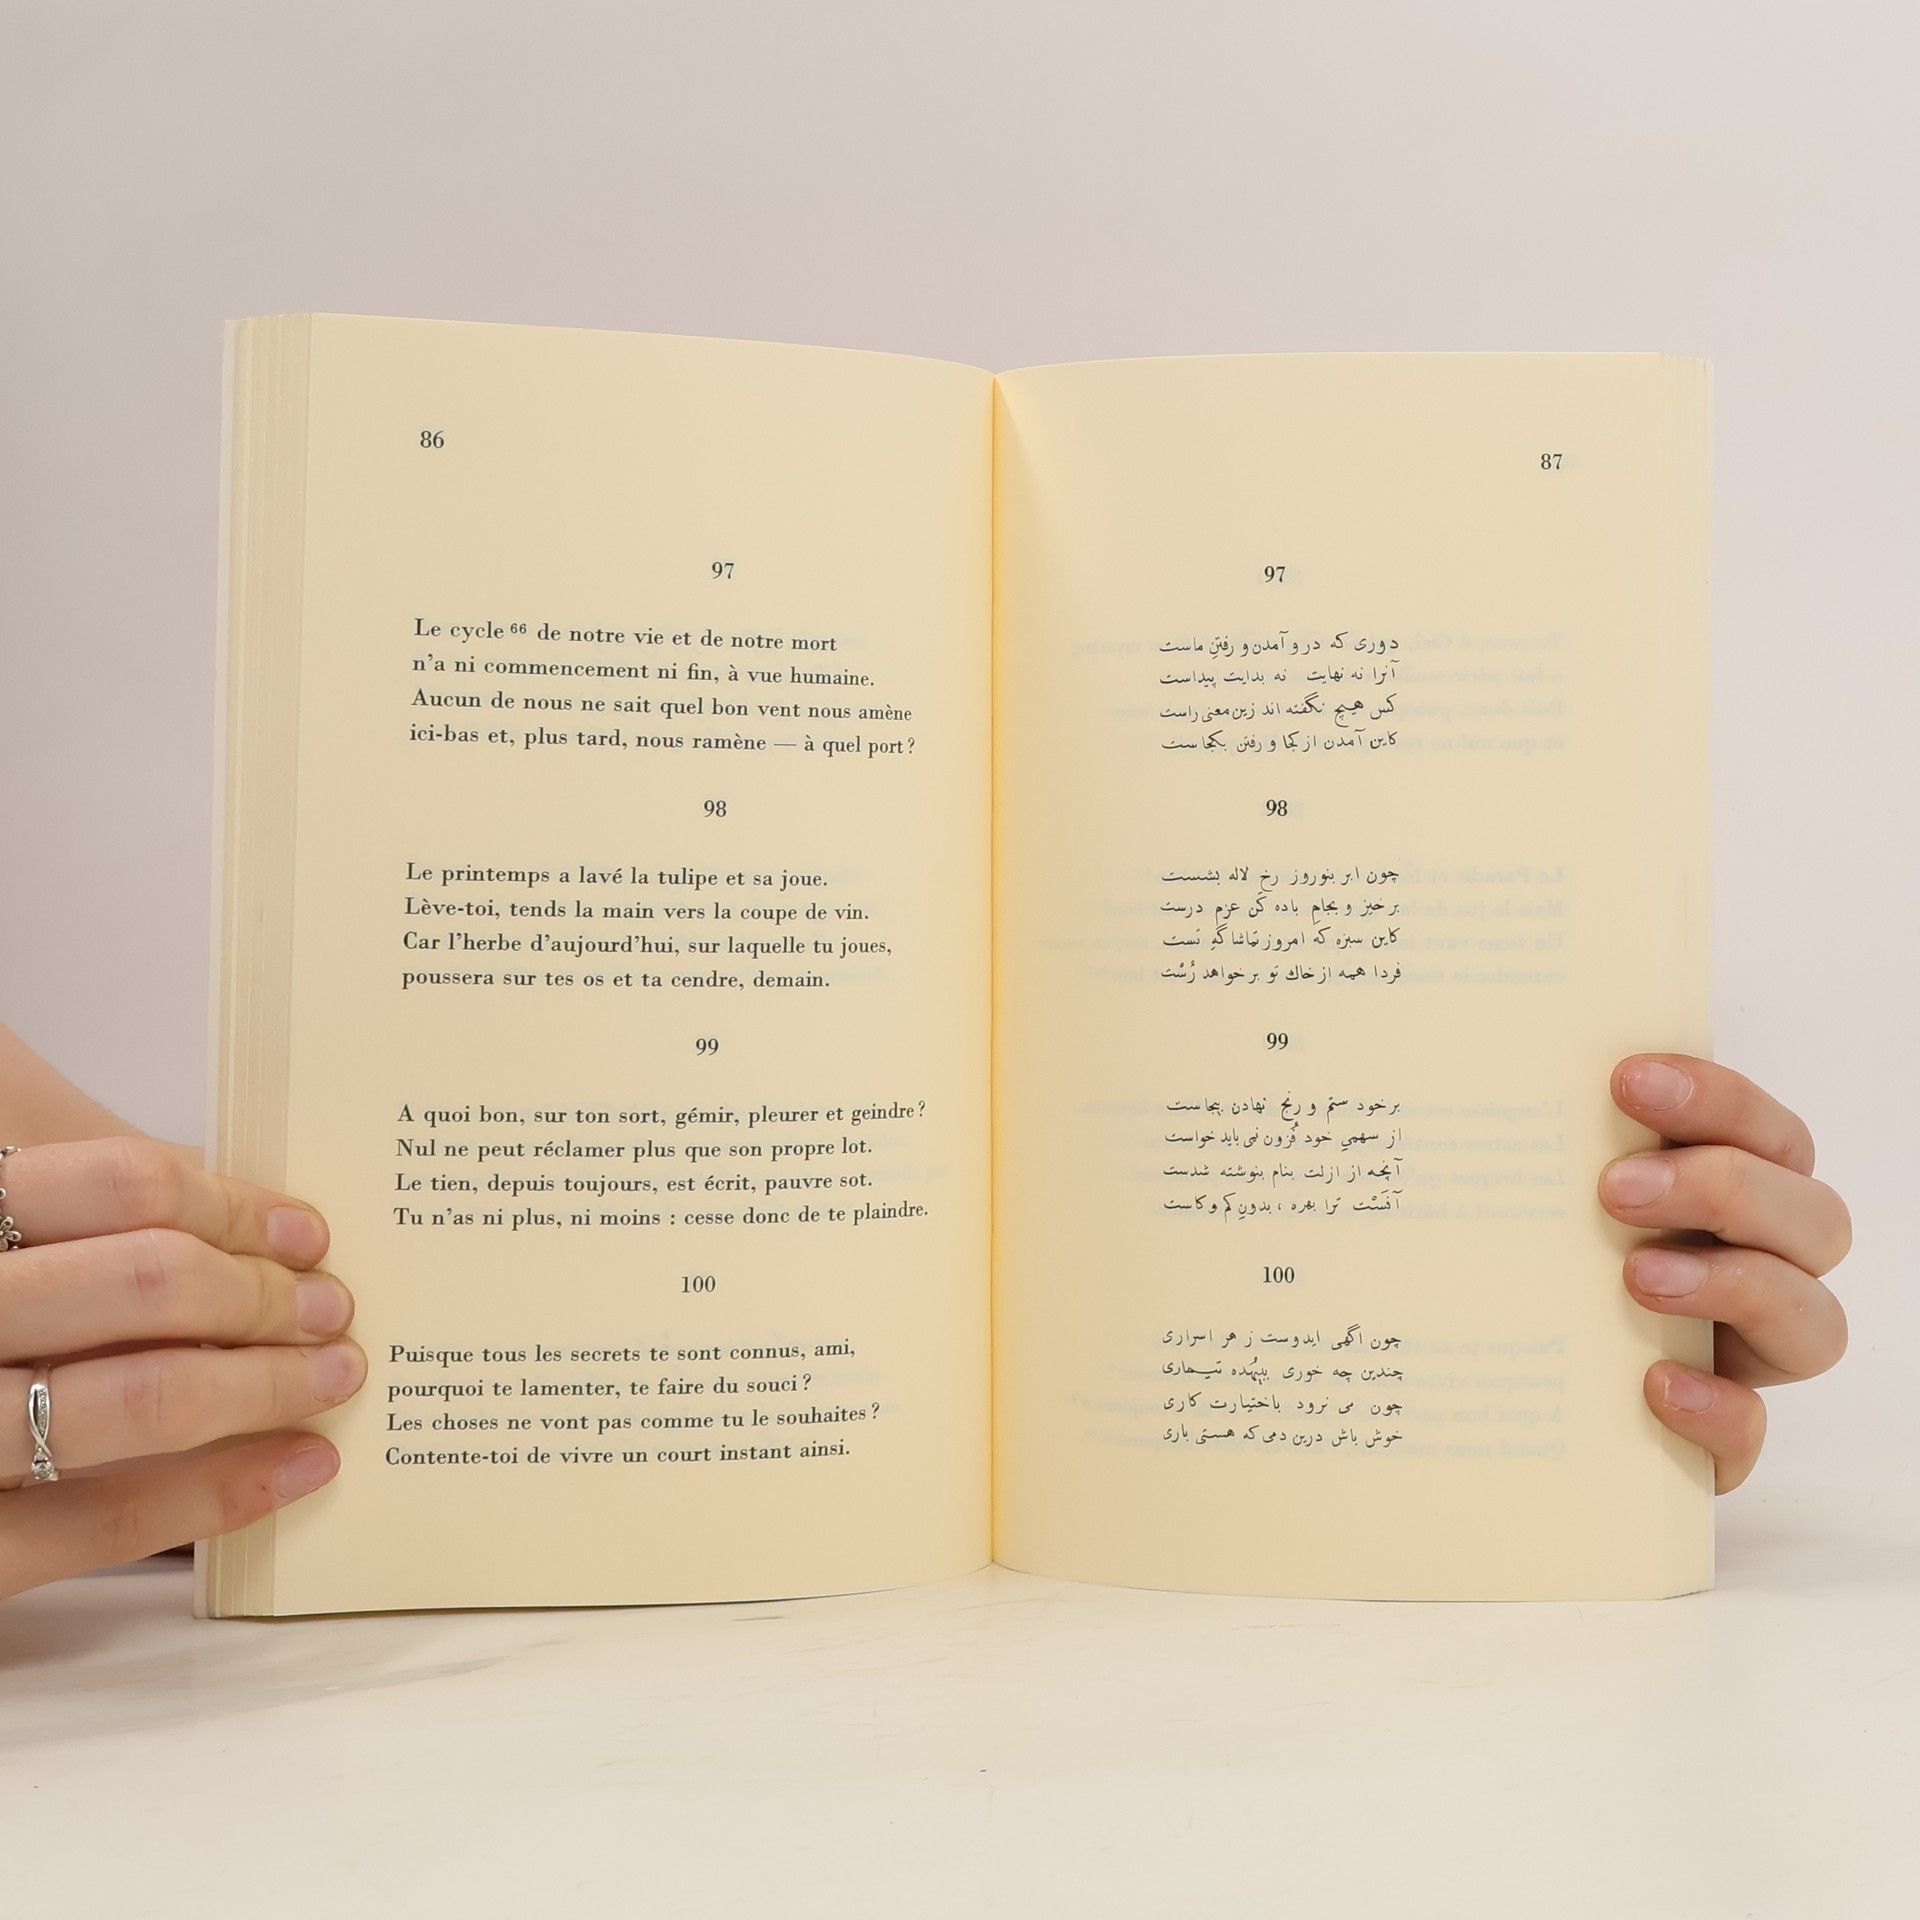 86
97
Le cycle ⁶⁶ de notre vie et de notre mort
n'a ni commencement ni fin, à vue humaine.
Aucun de nous ne sait quel bon vent nous amène
ici-bas et, plus tard, nous ramène — à quel port ?
98
Le printemps a lavé la tulipe et sa joue.
Lève-toi, tends la main vers la coupe de vin.
Car l'herbe d'aujourd'hui, sur laquelle tu joues,
poussera sur tes os et ta cendre, demain.
99
A quoi bon, sur ton sort, gémir, pleurer et geindre ?
Nul ne peut réclamer plus que son propre lot.
Le tien, depuis toujours, est écrit, pauvre sot.
Tu n'as ni plus, ni moins : cesse donc de te plaindre.
100
Puisque tous les secrets te sont connus, ami,
pourquoi te lamenter, te faire du souci ?
Les choses ne vont pas comme tu le souhaites ?
Contente-toi de vivre un court instant ainsi.
87
97
دوری که در و آمدن و رفتنِ ماست
آنرا نه نهایت نه بدایت پیداست
کس هیچ نگفته اند زین معنی راست
کاین آمدن از کجا و رفتن بکجا ست
98
چون ابر بنوروز رخ لاله بشست
بر خیز و بجامِ باده کَن عزم درست
کاین سبزه که امروز تماشا گهِ تست
فردا همه از خاك تو بر خواهد رُسْت
99
بر خود ستم و رنج نهادن بیجا ست
از سهمیِ خود فُزون نمی باید خواست
آنچه از ازلت بنام بنوشته شدست
آنَسْت ترا بهره ، بدونِ کم و کاست
100
چون اگهی ایدوست ز هر اسراری
چندین چه خوری بیهُده تیماری
چون می نرود باختیارت کاری
خوش باش درین دمی که هستی باری